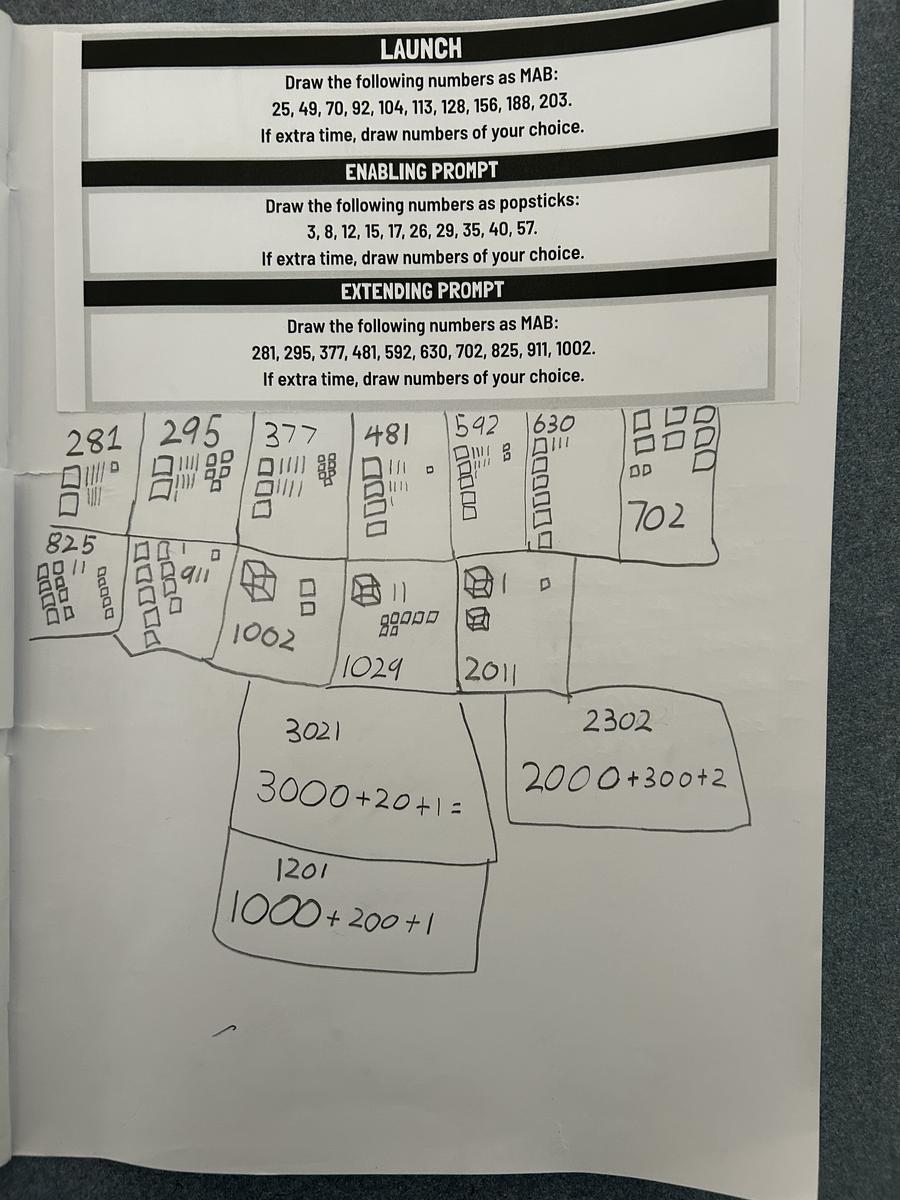 LAUNCH
Draw the following numbers as MAB:
25, 49, 70, 92, 104, 113, 128, 156, 188, 203.
If extra time, draw numbers of your choice.
ENABLING PROMPT
Draw the following numbers as popsticks:
3, 8, 12, 15, 17, 26, 29, 35, 40, 57.
If extra time, draw numbers of your choice.
EXTENDING PROMPT
Draw the following numbers as MAB:
281, 295, 377, 481, 592, 630, 702, 825, 911, 1002.
If extra time, draw numbers of your choice.
281
295
377
481
592
630
702
825
911
1002
1029
2011
3021
3000+20+1=
2302
2000+300+2
1201
1000+200+1